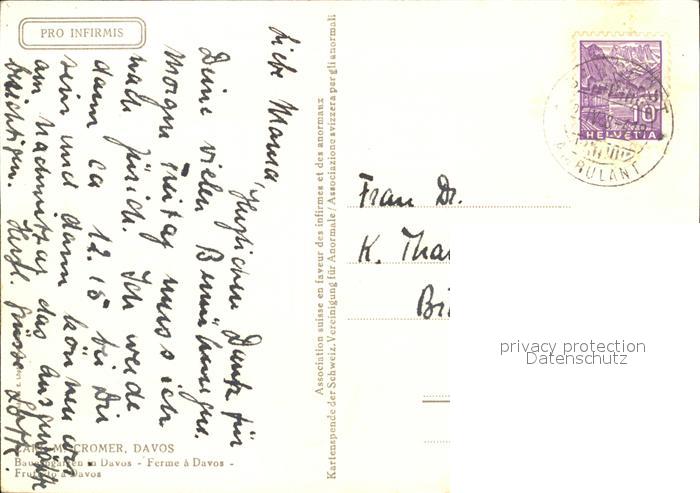 PRO INFIRMIS
Liebe Mama,
Herzlichen Dank für
Deine vielen Bemühungen.
Morgen Freitag muss ich
nach Zürich. Ich werde
dann ca 12.15 bei Dir
sein und dann können wir
am Nachmittag das
besichtigen. Herzl. Grüsse
CROMER, DAVOS
in Davos - Ferme à Davos -
à Davos
Association suisse en faveur des infirmes et des anormaux
Kartenspende der Schweiz. Vereinigung für Anormale / Associazione svizzera per gli anormali
10
HELVETIA
AMBULANT
Frau Dr.
K. Thar
Bi
privacy protection
Datenschutz